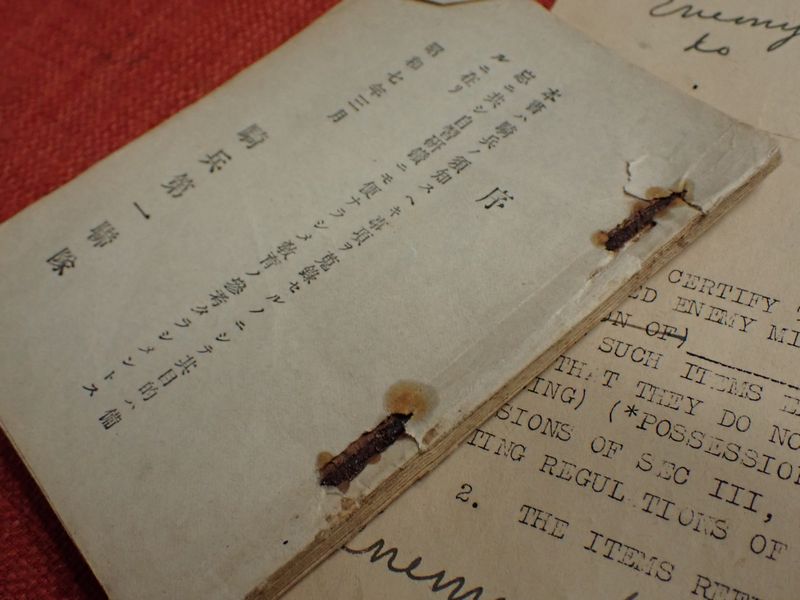 序
本書ハ騎兵ノ須知スヘキ事項ヲ蒐錄セルノニシテ其目的ハ備
忘ニ共シ自習研鑽ニモ便ナラシメ敎育ノ參考タラシメントス
ルニ在リ
昭和七年三月
騎兵第一聯隊
Enemy
to
CERTIFY
ED ENEMY MI
ON OF)
SUCH ITEMS E
THAT THEY DO NO
ING) (*POSSESSION
SIONS OF SEC III,
TING REGULATIONS OF
2. THE ITEMS REF
Enemy